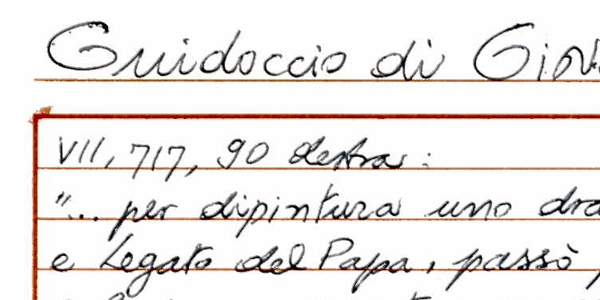 Guidoccio di Giov
VII, 717, 90 destra:
"... per dipintura uno dra
e Legato del Papa, passò